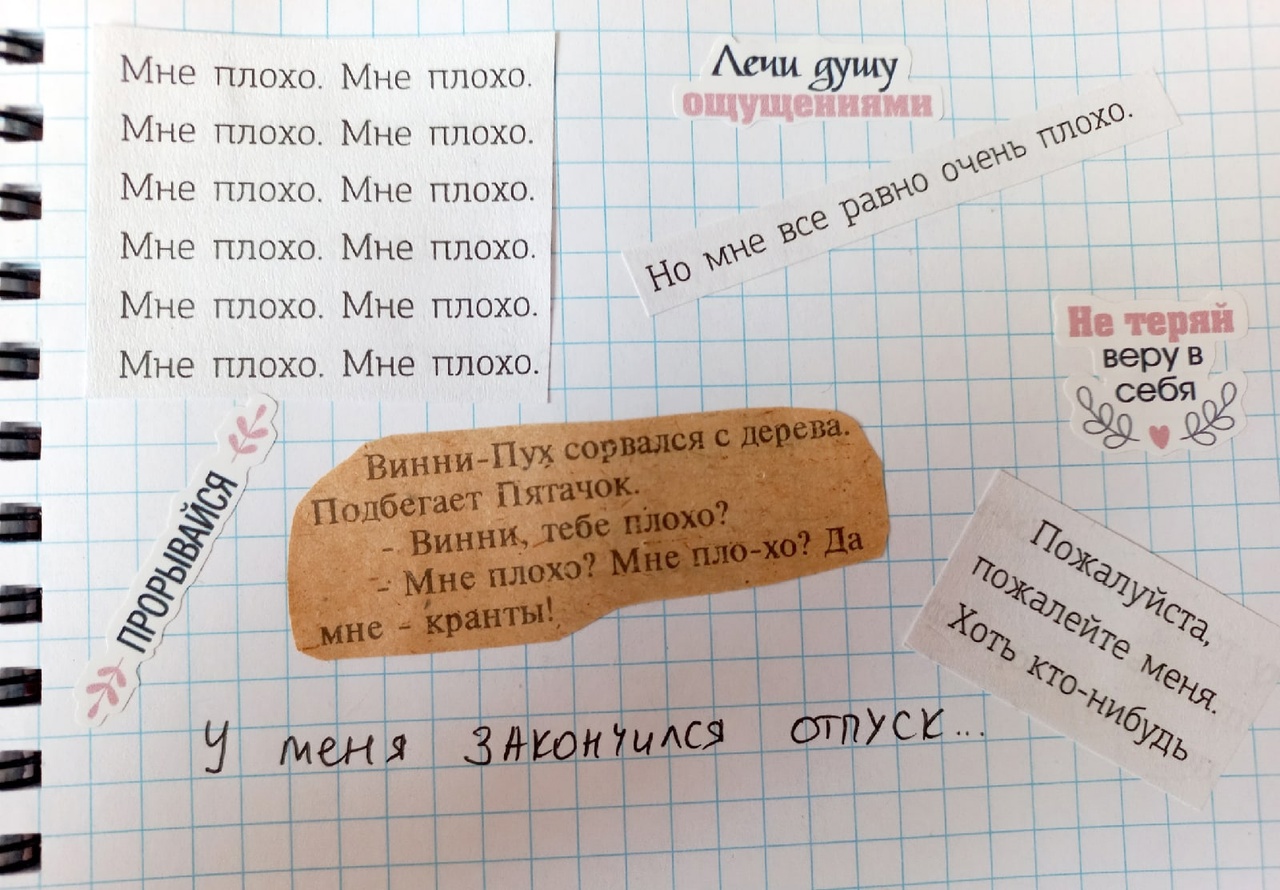 Мне плохо. Мне плохо.
Мне плохо. Мне плохо.
Мне плохо. Мне плохо.
Мне плохо. Мне плохо.
Мне плохо. Мне плохо.
Мне плохо. Мне плохо.
Лечи душу
ощущениями
Но мне все равно очень плохо.
Не теряй
веру в
себя
ПРОРЫВАЙСЯ
Винни-Пух сорвался с дерева.
Подбегает Пятачок.
- Винни, тебе плохо?
- Мне плохо? Мне пло-хо? Да
мне - кранты!
Пожалуйста,
пожалейте меня.
Хоть кто-нибудь
У меня закончился отпуск...